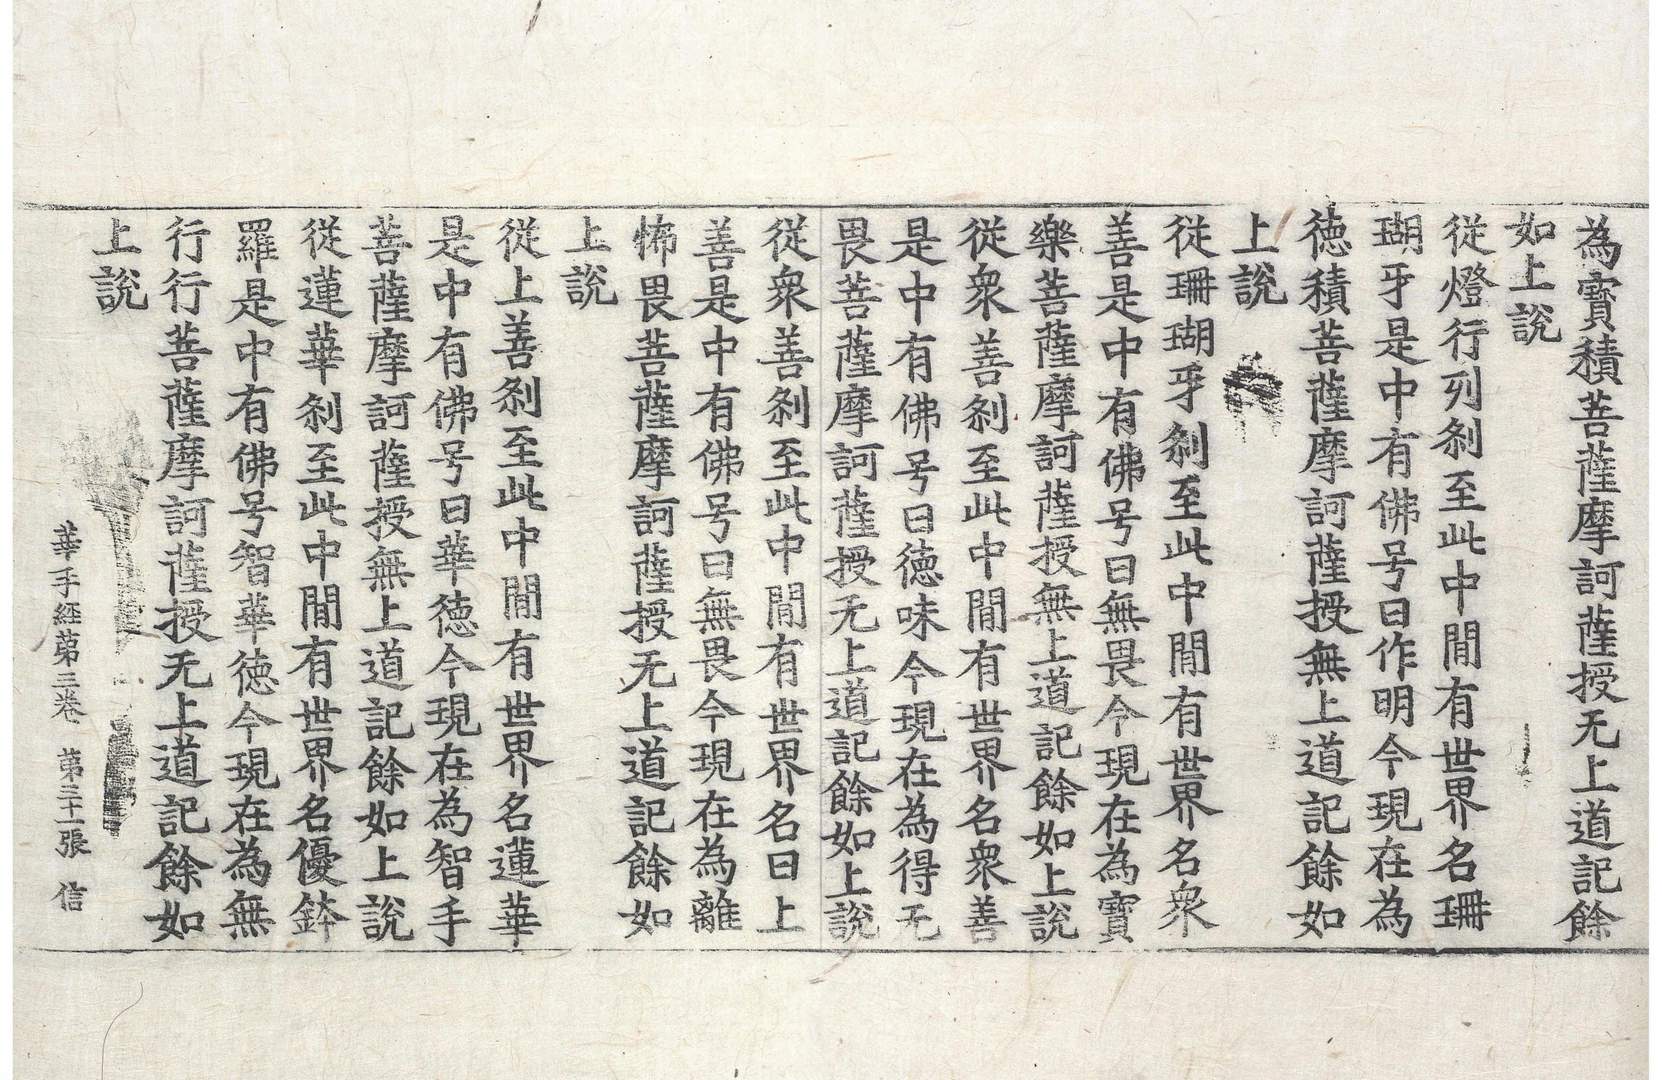 為寶積菩薩摩訶薩授无上道記餘
如上說
從燈行列刹至此中間有世界名珊
瑚牙是中有佛号曰作明今現在為
徳積菩薩摩訶薩授無上道記餘如
上說
從珊瑚牙刹至此中間有世界名衆
善是中有佛号曰無畏今現在為寶
樂菩薩摩訶薩授無上道記餘如上說
從衆善刹至此中間有世界名衆善
是中有佛号曰徳味今現在為得无
畏菩薩摩訶薩授无上道記餘如上說
從衆善刹至此中間有世界名曰上
善是中有佛号曰無畏今現在為離
怖畏菩薩摩訶薩授无上道記餘如
上說
從上善刹至此中間有世界名蓮華
是中有佛号曰華徳今現在為智手
菩薩摩訶薩授無上道記餘如上說
從蓮華刹至此中間有世界名優鉢
羅是中有佛号智華徳今現在為無
行行菩薩摩訶薩授无上道記餘如
上說
華手経第三卷 第三十張 信